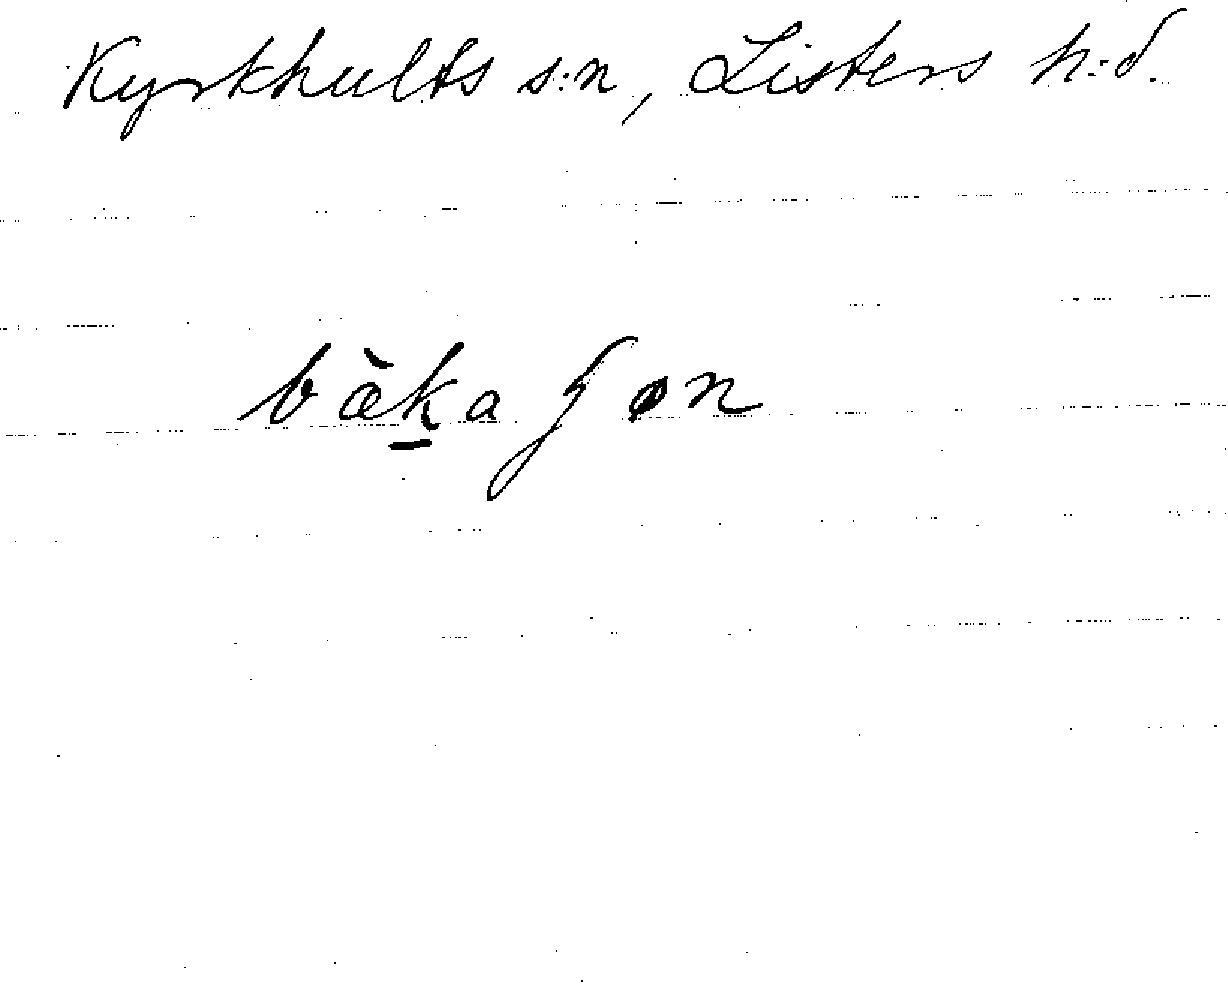 Kyrkhults s:n, Listers h:d.
bæ̀ka ʃøn